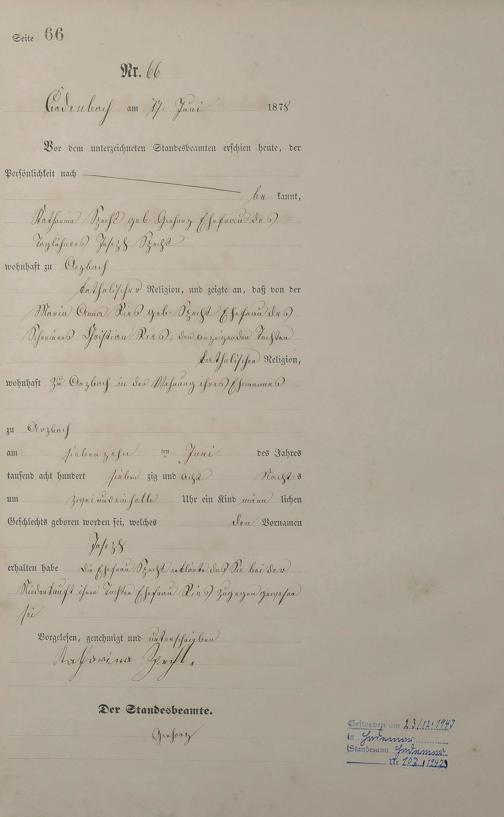 Seite 66
Nr. 66
Cadenbach am 17. Juni 1878
Vor dem unterzeichneten Standesbeamten erschien heute, der
Persönlichkeit nach
be kannt,
Katharina Specht geb Gerharz Ehefrau des
Taglöhners Joseph Specht
wohnhaft zu Arzbach
katholischer Religion, und zeigte an, daß von der
Maria Anna Ries geb. Specht Ehefrau des
Schreiners Christian Ries, der anzeigenden Tochter
katholischer Religion,
wohnhaft zu Arzbach in der Wohnung ihres Ehemannes
zu Arzbach
am siebenzehn ten Juni des Jahres
tausend acht hundert sieben zig und acht Nachts
um zweiundeinhalb Uhr ein Kind männ lichen
Geschlechts geboren worden sei, welches den Vornamen
Joseph
erhalten habe die Ehefrau Specht erklärte daß Sie bei der
Niederkunft ihrer Tochter Ehefrau Ries zugegen gewesen
sei
Vorgelesen, genehmigt und unterschrieben
Katharina Specht.
Der Standesbeamte.
Gerharz
Gestorben am 23/12.1942
in Hadamar
Standesamt Hadamar
Nr 102 / 1942